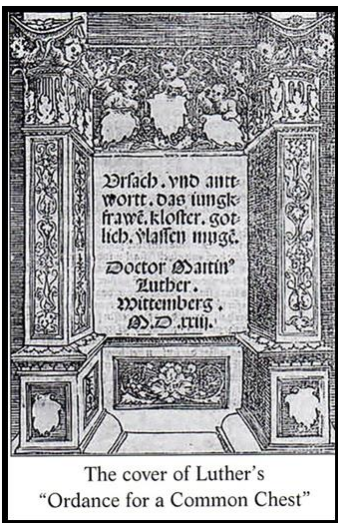 Ursach . vnd antt-
wortt . das iungk-
frawẽ . kloster . got-
lich . v̈lassen mugẽ.
Doctor Martinꝰ
Luther .
Wittemberg .
M.D .xxiij.
The cover of Luther's
"Ordance for a Common Chest"